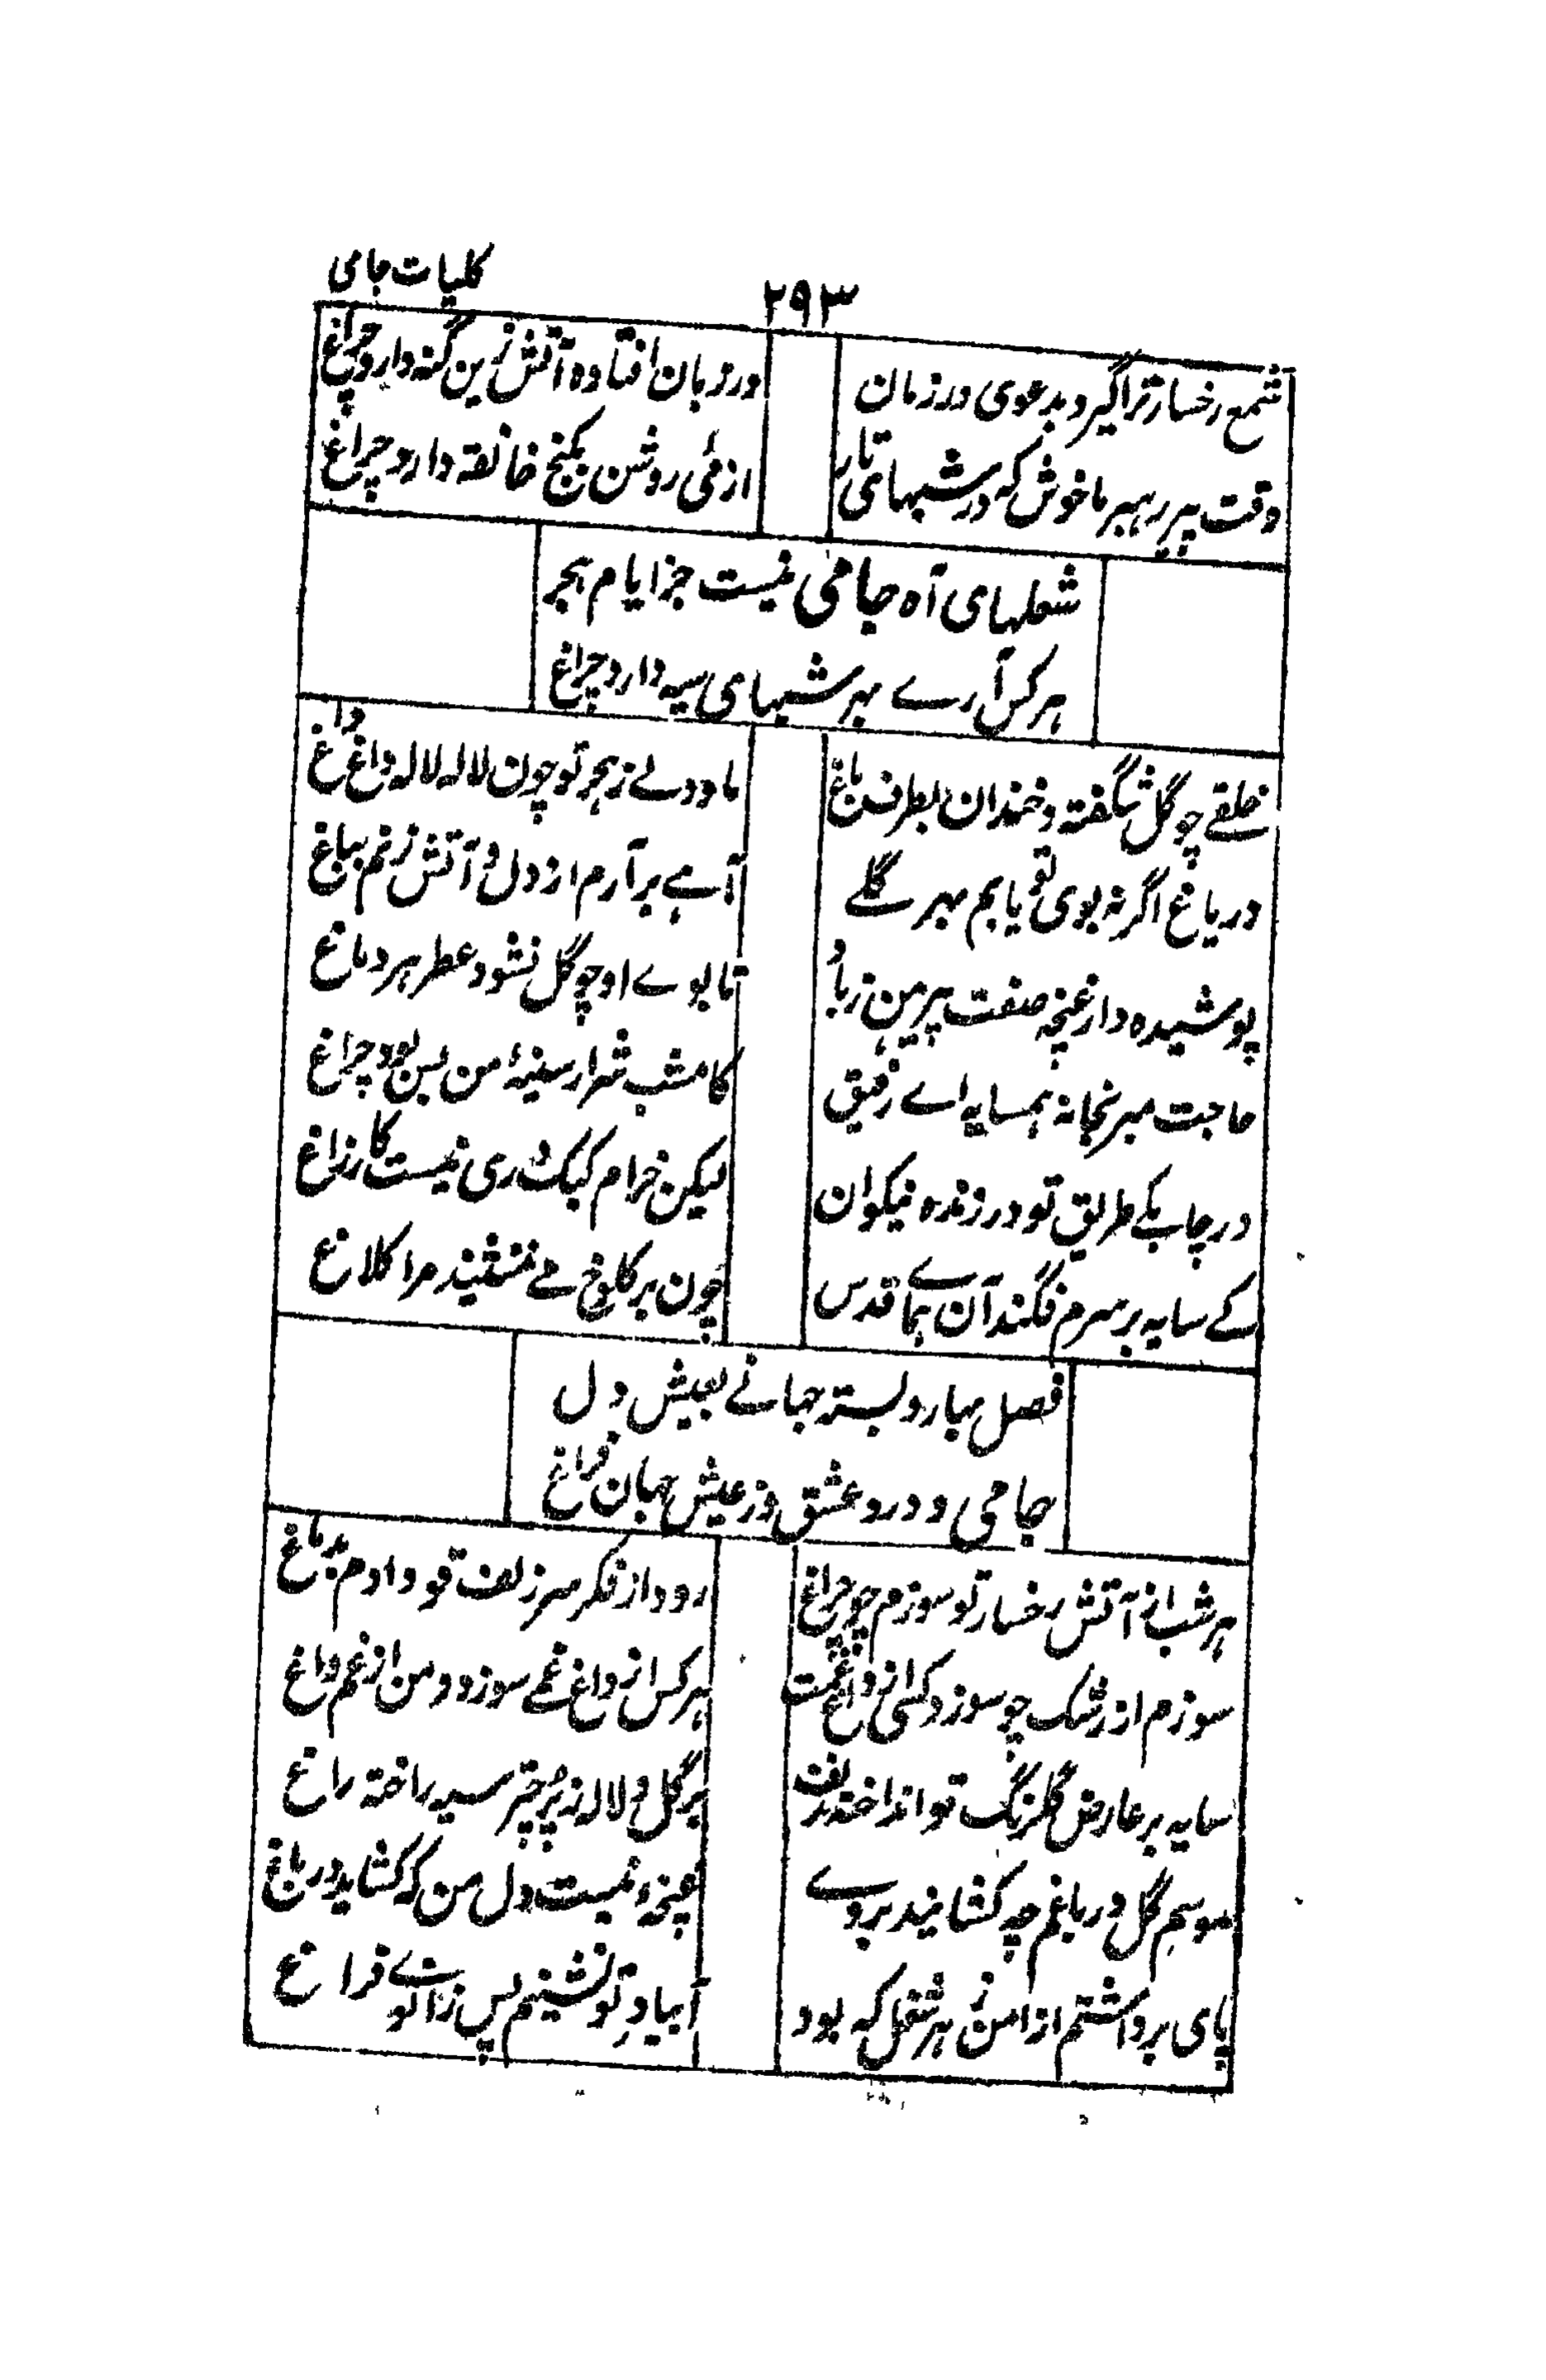 کلیات جامی
۲۹۳
شمع رخسار ترا گیرد بدعوی در زمان
در دبان افتاده آتش زین گنه دارد چراغ
وقت پیر رهبر ما خوش که در شبهای تار
از می روشن بکنج خانقه دارد چراغ
شعلهای آه جامی نیست جز ایام هجر
هر کس آرے بهر شبهای سیه دارد چراغ
خلقے چو گل شگفته و خندان بطرف باغ
ما و دلے ز هجر تو چون لاله لاله داغ داغ
در باغ اگر نه بوی تو یابم بهر گلے
آہے بر آرم از دل و آتش زنم بباغ
پوشیده دار غنچه صفت پیرهن ز باد
تا بوے او چو گل نشود عطر هر دماغ
حاجت مبر بخانه همسایه اے رفیق
کامشب شرار سینهٔ من بس بود چراغ
در چابکے طریق تو ورزنده نیکوان
لیکن خرام کبک دری نیست کار زاغ
کے سایه بر سرم فگند آن هماے قدس
چون بر کلوخ مے ننشیند مرا کلاغ
فصل بهار و بسته جهانے بعیش دل
جامی و درد عشق و ز عیش جهان فراغ
هر شب از آتش رخسار تو سوزم چو چراغ
رود از فکر سر زلف تو دادم بدماغ
سوزم از رشک چو سوزد کسی از داغ غمت
هر کس از داغ غمے سوزد و من از غم داغ
سایه بر عارض گلرنگ تو انداخته زلف
بر گل و لاله ز پر چتر سیه راخته راغ
موسم گل در باغم چه کشایند بروے
غنچه نیست دل من که کشاید در باغ
پای برداشتم از امن ز هر شغل که بود
آبیاد تو نشینم پس زانوے فراغ